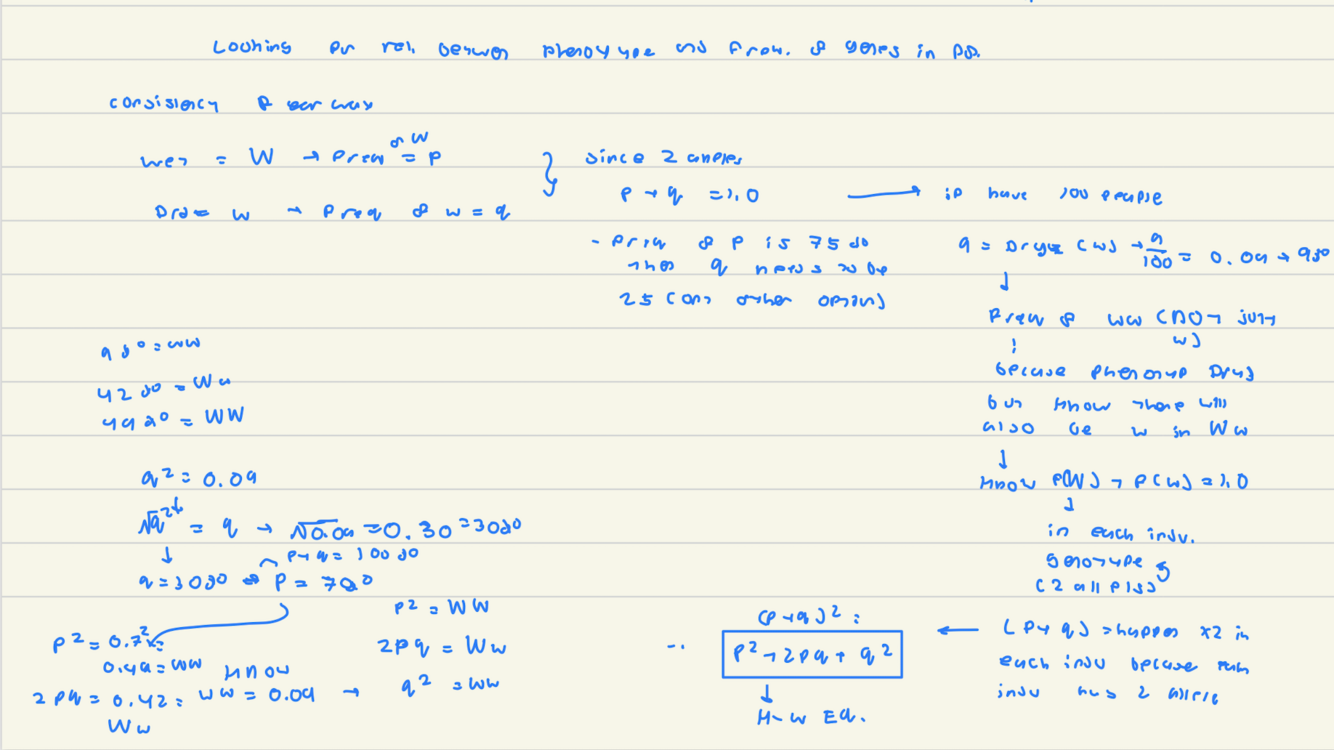 Looking for rel. between phenotype and freq. of genes in pop.
consistency of ear wax
wet = W → freq of W = p
Dry = w → freq of w = q
} since 2 alleles
p + q = 1.0 → if have 100 people
- freq of p is 75%
then q needs to be
25 (only other option)
q = Dry (w) → 9/100 = 0.09 → 9%
↓
freq of ww (not just
w)
because phenotype Dry
but know there will
also be w in Ww
↓
know p(W) + p(w) = 1.0
↓
in each indv.
genotype
(2 alleles)
(p+q) → happens x2 in
each indv because each
indv has 2 alleles
←
(p+q)² =
∴ p² + 2pq + q²
↓
H-W Eq.
9% = ww
42% = Ww
49% = WW
q² = 0.09
√q² = q → √0.09 = 0.30 = 30%
↓ p+q = 100%
q = 30% p = 70%
p² = 0.7² =
0.49 = WW know
2pq = 0.42 = ww = 0.09 →
Ww
p² = WW
2pq = Ww
q² = ww